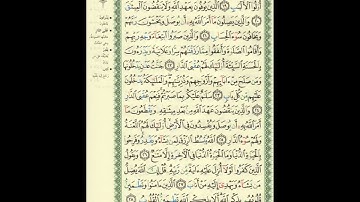 أُوْلُواْ ٱلۡأَلۡبَٰبِ ١٩ ٱلَّذِينَ يُوفُونَ بِعَهۡدِ ٱللَّهِ وَلَا يَنقُضُونَ ٱلۡمِيثَٰقَ
٢٠ وَٱلَّذِينَ يَصِلُونَ مَآ أَمَرَ ٱللَّهُ بِهِۦٓ أَن يُوصَلَ وَيَخۡشَوۡنَ رَبَّهُمۡ
وَيَخَافُونَ سُوٓءَ ٱلۡحِسَابِ ٢١ وَٱلَّذِينَ صَبَرُواْ ٱبۡتِغَآءَ وَجۡهِ رَبِّهِمۡ
وَأَقَامُواْ ٱلصَّلَوٰةَ وَأَنفَقُواْ مِمَّا رَزَقۡنَٰهُمۡ سِرّٗا وَعَلَانِيَةٗ وَيَدۡرَءُونَ
بِٱلۡحَسَنَةِ ٱلسَّيِّئَةَ أُوْلَٰٓئِكَ لَهُمۡ عُقۡبَى ٱلدَّارِ ٢٢ جَنَّٰتُ عَدۡنٖ يَدۡخُلُونَهَا
وَمَن صَلَحَ مِنۡ ءَابَآئِهِمۡ وَأَزۡوَٰجِهِمۡ وَذُرِّيَّٰتِهِمۡۖ وَٱلۡمَلَٰٓئِكَةُ يَدۡخُلُونَ
عَلَيۡهِم مِّن كُلِّ بَابٖ ٢٣ سَلَٰمٌ عَلَيۡكُم بِمَا صَبَرۡتُمۡۚ فَنِعۡمَ عُقۡبَى ٱلدَّارِ
٢٤ وَٱلَّذِينَ يَنقُضُونَ عَهۡدَ ٱللَّهِ مِنۢ بَعۡدِ مِيثَٰقِهِۦ وَيَقۡطَعُونَ مَآ
أَمَرَ ٱللَّهُ بِهِۦٓ أَن يُوصَلَ وَيُفۡسِدُونَ فِي ٱلۡأَرۡضِ أُوْلَٰٓئِكَ لَهُمُ ٱللَّعۡنَةُ
وَلَهُمۡ سُوٓءُ ٱلدَّارِ ٢٥ ٱللَّهُ يَبۡسُطُ ٱلرِّزۡقَ لِمَن يَشَآءُ وَيَقۡدِرُۚ وَفَرِحُواْ
بِٱلۡحَيَوٰةِ ٱلدُّنۡيَا وَمَا ٱلۡحَيَوٰةُ ٱلدُّنۡيَا فِي ٱلۡأٓخِرَةِ إِلَّا مَتَٰعٞ ٢٦ وَيَقُولُ
ٱلَّذِينَ كَفَرُواْ لَوۡلَآ أُنزِلَ عَلَيۡهِ ءَايَةٞ مِّن رَّبِّهِۦۚ قُلۡ إِنَّ ٱللَّهَ يُضِلُّ
مَن يَشَآءُ وَيَهۡدِيٓ إِلَيۡهِ مَنۡ أَنَابَ ٢٧ ٱلَّذِينَ ءَامَنُواْ وَتَطۡمَئِنُّ